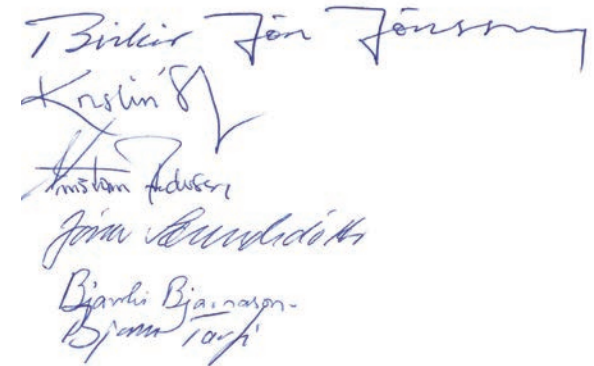 Birkir Jón Jónsson
Kristín
Kristian Pedersen
Jóna Benediktsdóttir
Bjarki Bjarnason
Bjarni Torfi